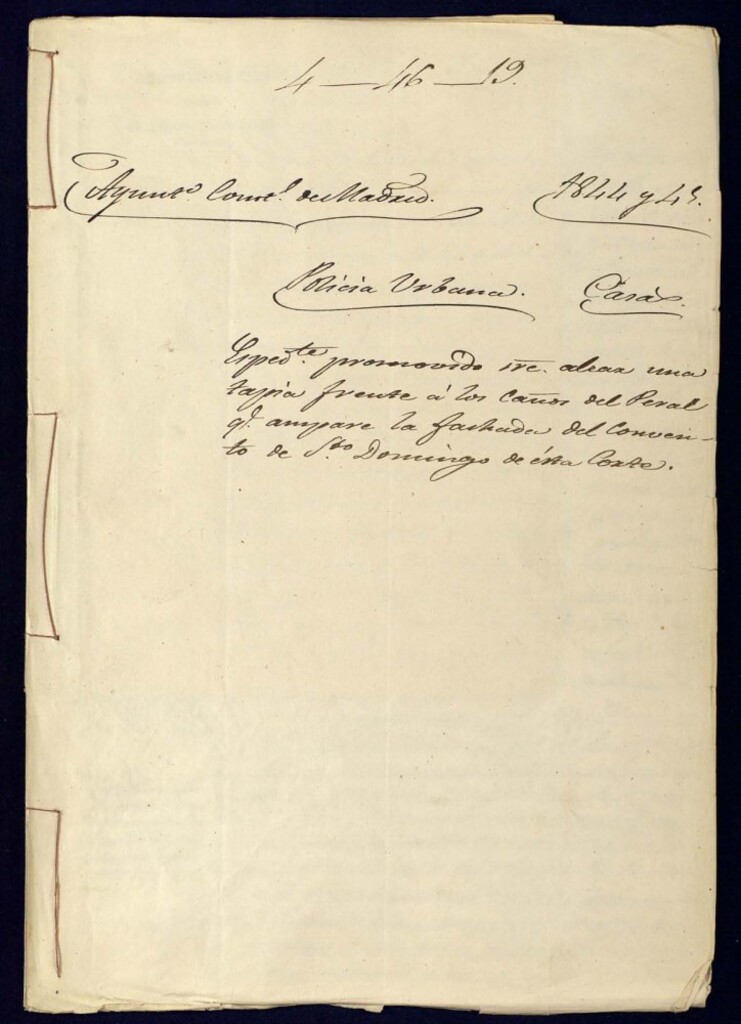 4 — 46 — 19.
Ayunt.º Const.l de Madrid. 1844 y 45.
Policia Urbana. Casas.
Esped.te promovido sre. alzar una
tapia frente á los caños del Peral
q.e ampare la fachada del Conven-
to de S.to Domingo de ésta Corte.